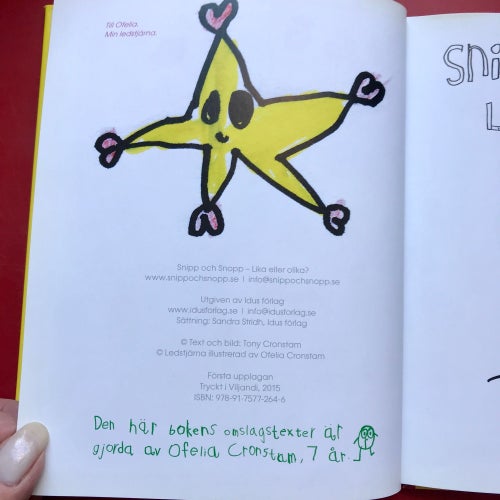 Till Ofelia.
Min ledstjärna.
Snipp och Snopp – Lika eller olika?
www.snippochsnopp.se | info@snippochsnopp.se
Utgiven av Idus förlag
www.idusforlag.se | info@idusforlag.se
Sättning: Sandra Stridh, Idus förlag
© Text och bild: Tony Cronstam
© Ledstjärna illustrerad av Ofelia Cronstam
Första upplagan
Tryckt i Viljandi, 2015
ISBN: 978-91-7577-264-6
Den här bokens omslagstexter är
gjorda av Ofelia Cronstam, 7 år.
Snip
L